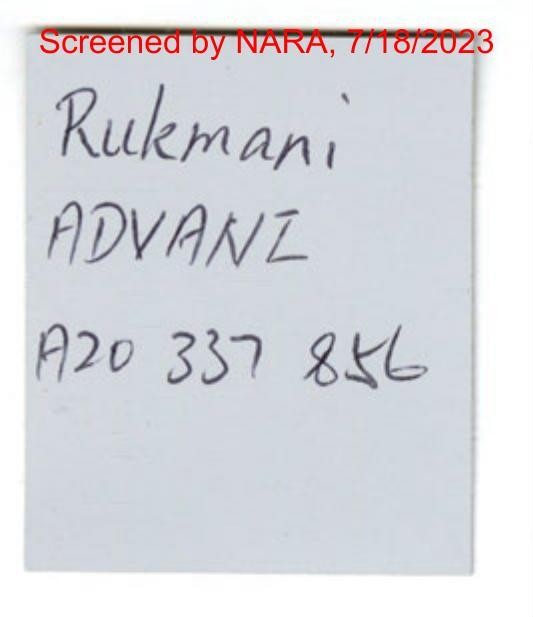 Screened by NARA, 7/18/2023
Rukmani
ADVANI
A20 337 856